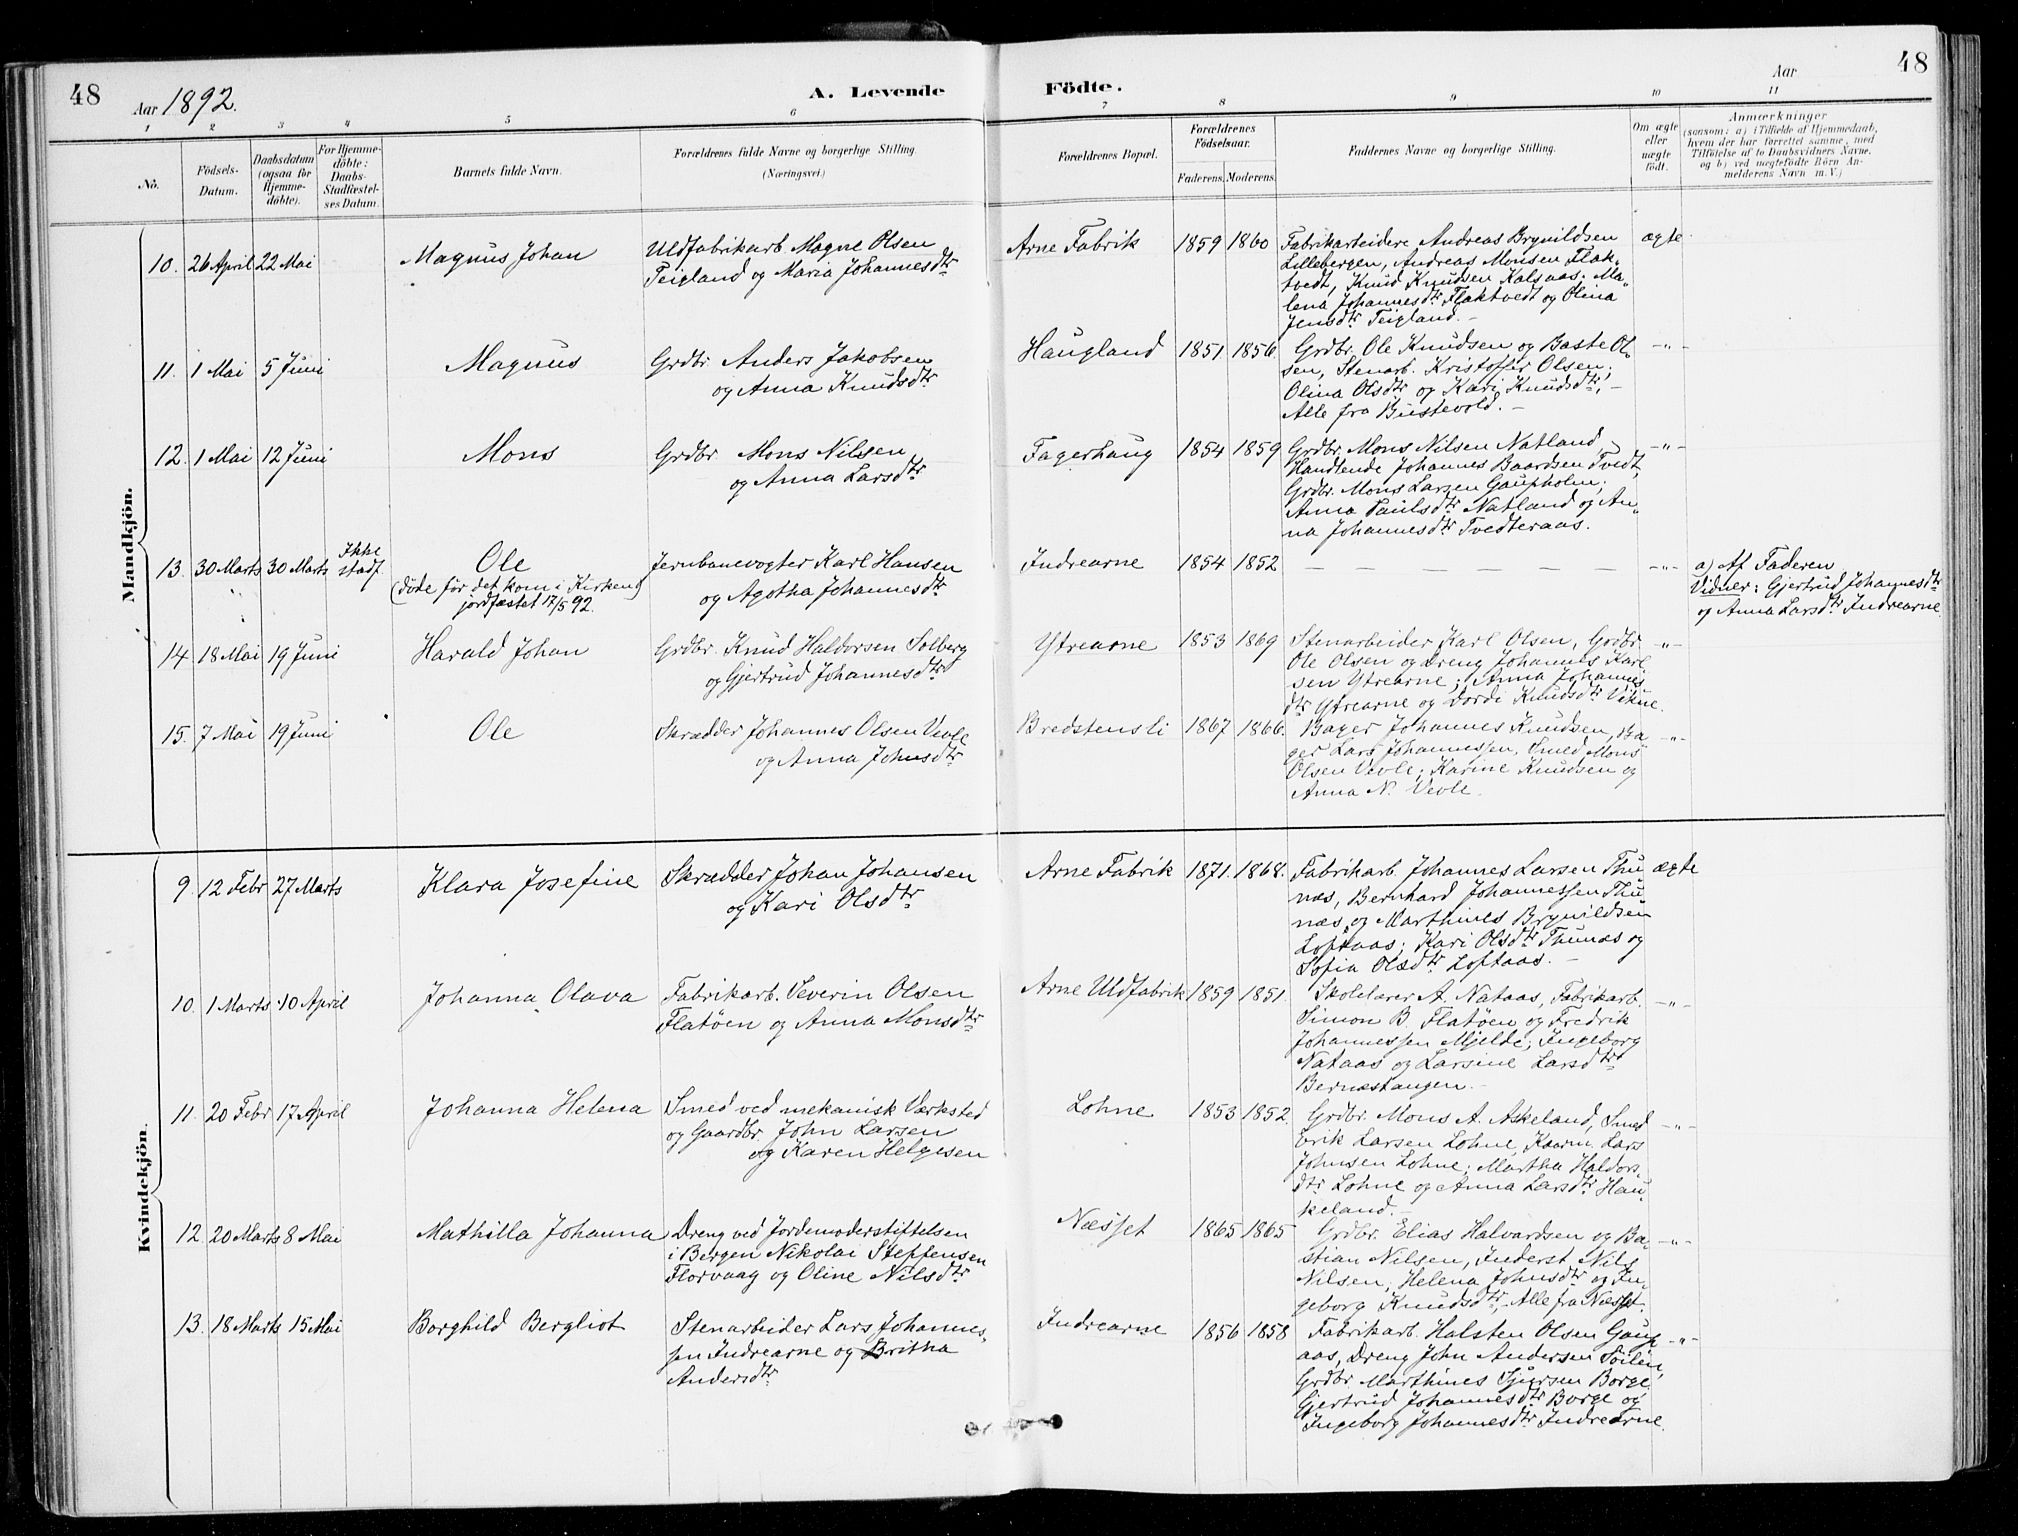 48
Aar 1892.
A. Levende
Födte.
Aar
48
1 2 3 4 5 6 7 8 9 10 11
No.
Födsels-Datum.
Daabsdatum (ogsaa for Hjemmedöbte).
For Hjemmedöbte: Daabs-Stadfæstelses Datum.
Barnets fulde Navn.
Forældrenes fulde Navne og borgerlige Stilling.
(Næringsvei.)
Forældrenes Bopæl.
Forældrenes Födselsaar.
Faderens. Moderens.
Faddernes Navne og borgerlige Stilling.
Om ægte eller uægte födt.
Anmærkninger
(saasom: a) i Tilfælde af Hjemmedaab, hvem der har forrettet samme, med Tilföielse af to Daabsvidners Navne, og b) ved uægtefödte Börn Anmelderens Navn m. V.)
Mandkjön.
10. 26 April 22 Mai
Magnus Johan
Uldfabrikarb. Magne Olsen
Teigland og Maria Johannesdtr
Arne Fabrik 1859 1860
Fabrikarbeidere Andreas Brynildsen
Lillebergen, Andreas Monsen Flak-
tvedt, Knud Knudsen Kalsaas. Ma-
lena Johannesdtr Flaktvedt og Olina
Jensdtr Teigland. -
ægte
11. 1 Mai 5 Juni
Magnus
Grdbr. Anders Jakobsen
og Anna Knudsdtr
Haugland 1851 1856
Grdbr. Ole Knudsen og Baste Ol-
sen, Stenarb. Kristoffer Olsen;
Olina Olsdtr og Kari Knudsdtr, -
Alle fra Bustevold. -
-"-
12. 1 Mai 12 Juni
Mons
Grdbr. Mons Nilsen
og Anna Larsdtr
Fagerhaug 1854 1859
Grdbr. Mons Nilsen Natland
Handlende Johannes Baardsen Tvedt,
Grdbr. Mons Larsen Gaupholm;
Anna Paulsdtr Natland og An-
na Johannesdtr Tvedteraas.
-"-
13. 30 Marts 30 Marts
Ikke
stadf.
Ole
(døde før det kom i Kirken)
jordfæstet 17/5 92.
Jernbanevogter Karl Hansen
og Agotha Johannesdtr
Indrearne 1854 1852
- - - - - -
-"-
a) Af Faderen
Vidner: Gjertrud Johannesdtr
og Anna Larsdtr Indrearne
14 18 Mai 19 Juni
Harald Johan
Grdbr. Knud Haldorsen Solberg
og Gjertrud Johannesdtr
Ytrearne 1853 1869
Stenarbeider Karl Olsen, Grdbr.
Ole Olsen og Dreng Johannes Karl
sen Ytrearne; Anna Johannes
dtr Ytrearne og Dordi Knudsdtr Vikne.
-"-
15. 7 Mai 19 Juni
Ole
Skrædder Johannes Olsen Vevle
og Anna Johnsdtr
Bredstensli 1867 1866.
Bager Johannes Knudsen, Ba-
ger Lars Johannessen, Smed Mons
Olsen Vevle; Karine Knudsen og
Anna N. Vevle.
-"-
Kvindekjön.
9. 12 Febr 27 Marts
Klara Josefine
Skrædder Johan Johansen
og Kari Olsdtr
Arne Fabrik 1871. 1868.
Fabrikarb. Johannes Larsen Thu-
næs, Bernhard Johannessen Thu
næs, og Marthines Brynildsen
Loftaas; Kari Olsdtr Thunæs og
Sofia Olsdtr Loftaas. -
ægte
10. 1 Marts 10 April
Johanna Olava
Fabrikarb. Severin Olsen
Flatøen og Anna Monsdtr
Arne Uldfabrik 1859 1851.
Skolelærer A. Nataas, Fabrikarb.
Simon B. Flatøen og Fredrik
Johannessen Mjelde; Ingeborg
Nataas og Larsine Larsdtr
Bernæstangen. -
-"-
11. 20 Febr 17 April
Johanna Helena
Smed ved mekanisk Værksted
og Gaardbr. John Larsen
og Karen Helgesen
Lohne 1853 1852
Grdbr. Mons A. Askeland, Smed
Erik Larsen Lohne, Kaarm. Lars
Johnsen Lohne; Martha Haldors
dtr Lohne og Anna Larsdtr Hau-
keland. -
-"-
12. 20 Marts 8 Mai
Mathilla Johanna
Dreng ved Jordemoderstiftelsen
i Bergen Nikolai Steffensen
Florvaag og Oline Nilsdtr
Næsset 1865 1865
Grdbr. Elias Halvardsen og Ba-
stian Nilsen, Inderst Nils
Nilsen; Helena Johnsdtr og In-
geborg Knudsdtr, - Alle fra Næsset.
-"-
13. 18 Marts 15 Mai
Borghild Bergliot
Stenarbeider Lars Johannes-
sen Indrearne og Britha
Andersdtr
Indrearne 1856 1858
Fabrikarb. Halsten Olsen Gaup-
aas, Dreng John Andersen Søilen,
Grdbr. Marthines Sjursen Borge
Gjertrud Johannesdtr Borge og
Ingeborg Johannesdtr Indrearne.
-"-